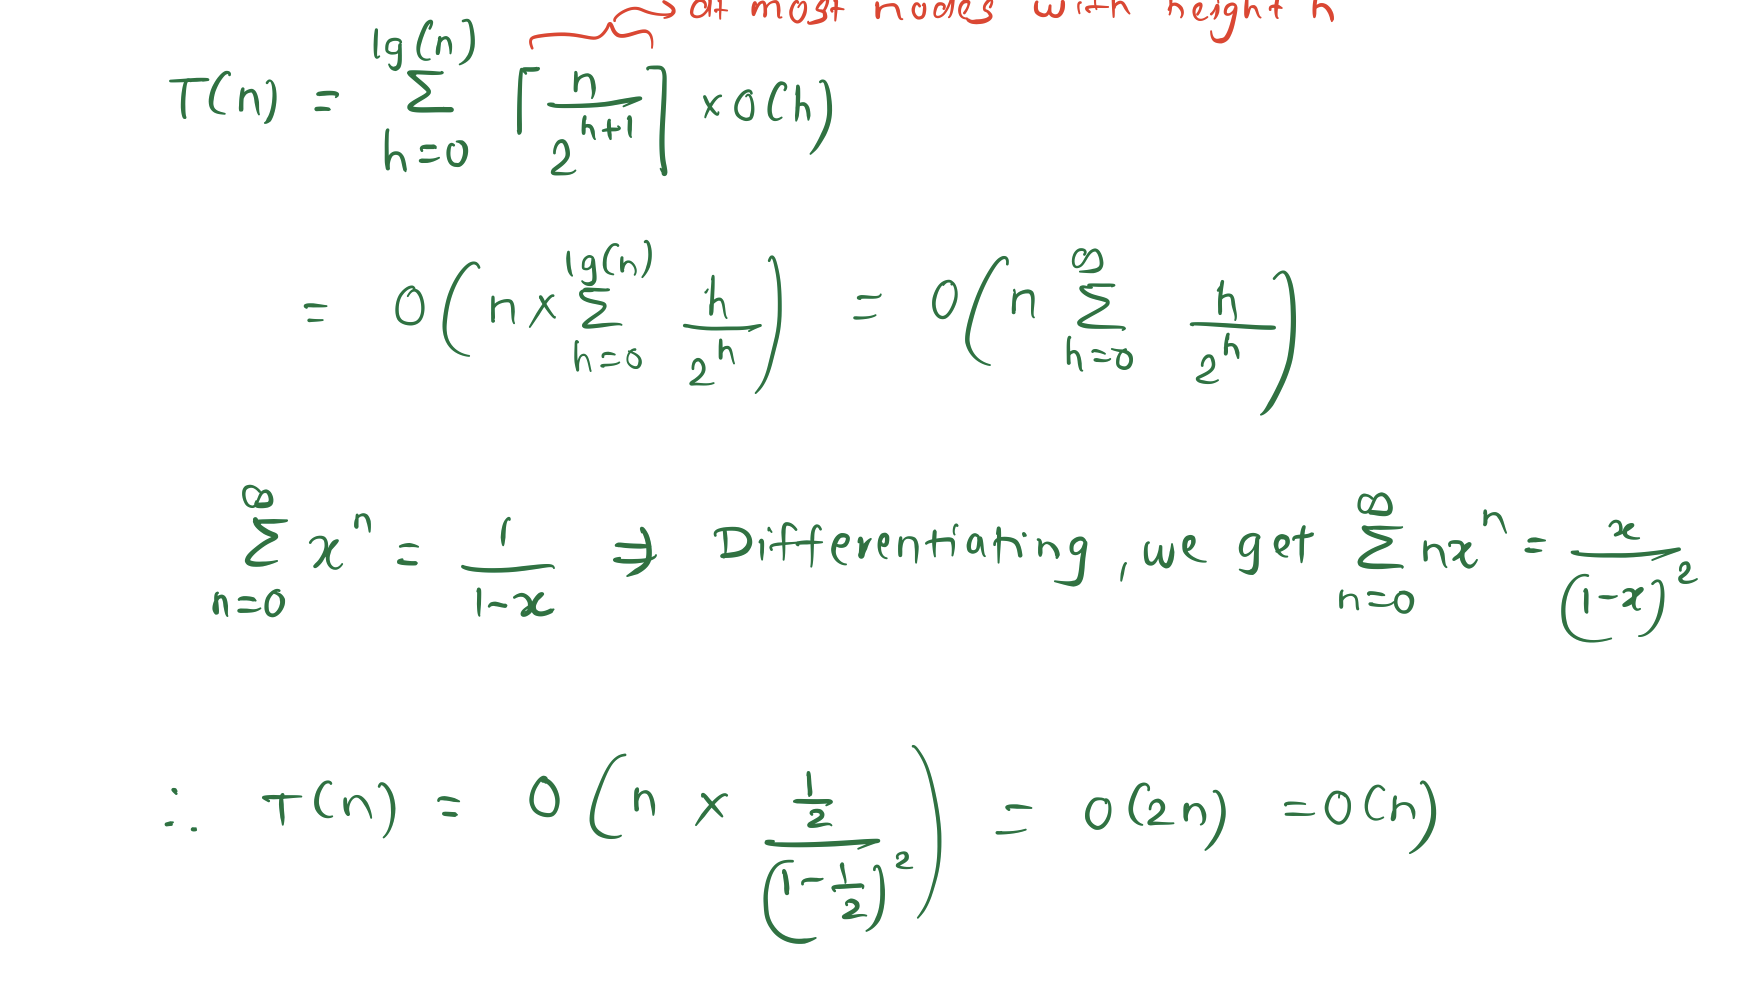 → at most nodes with height h
T(n) = \sum_{h=0}^{lg(n)} ⌈\frac{n}{2^{h+1}}⌉ × O(h)
= O(n × \sum_{h=0}^{lg(n)} \frac{h}{2^h}) = O(n \sum_{h=0}^{∞} \frac{h}{2^h})
\sum_{n=0}^{∞} x^n = \frac{1}{1-x} ⇒ Differentiating, we get \sum_{n=0}^{∞} nx^n = \frac{x}{(1-x)^2}
∴ T(n) = O(n × \frac{\frac{1}{2}}{(1-\frac{1}{2})^2}) = O(2n) = O(n)